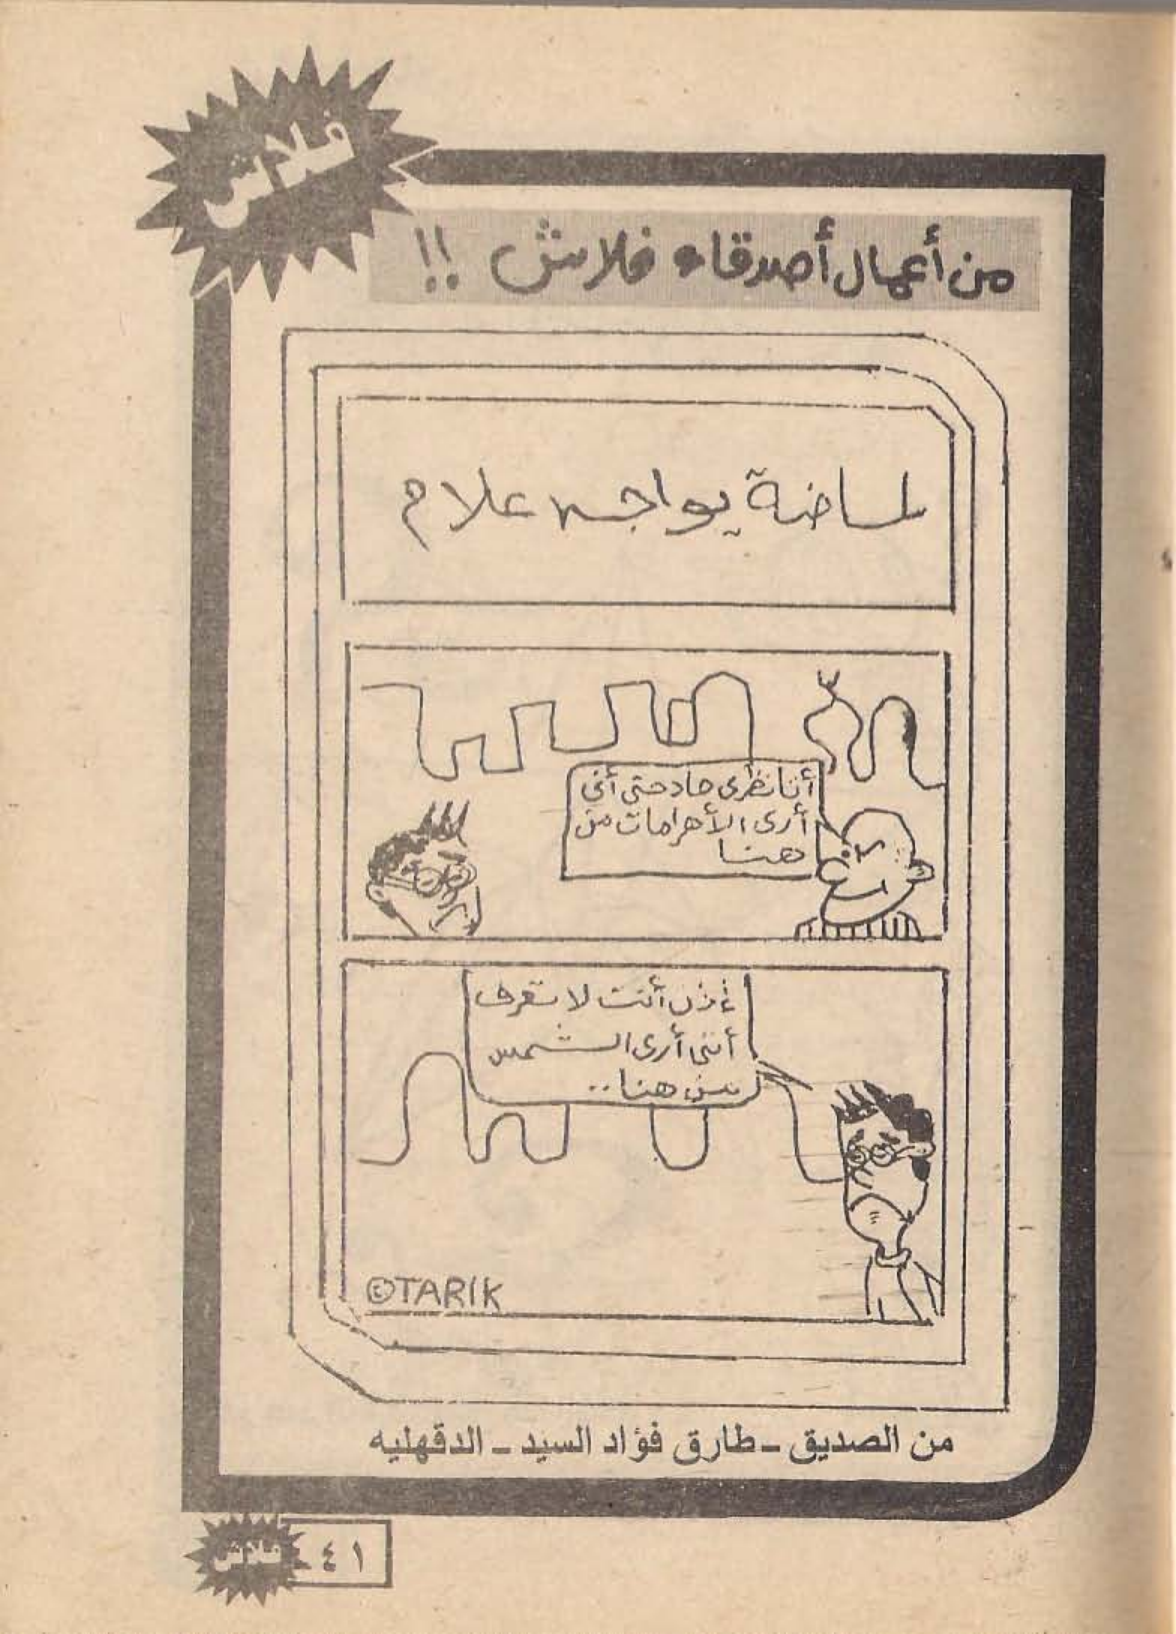 فلاش
من أعمال أصدقاء فلاش !!
لماضة يواجه علام
أنا نظرى حاد حتى أنى
أرى الأهرامات من
هنا
إذن أنت لا تعرف
أننى أرى الشمس
من هنا..
©TARIK
من الصديق - طارق فؤاد السيد - الدقهليه
فلاش ٤١